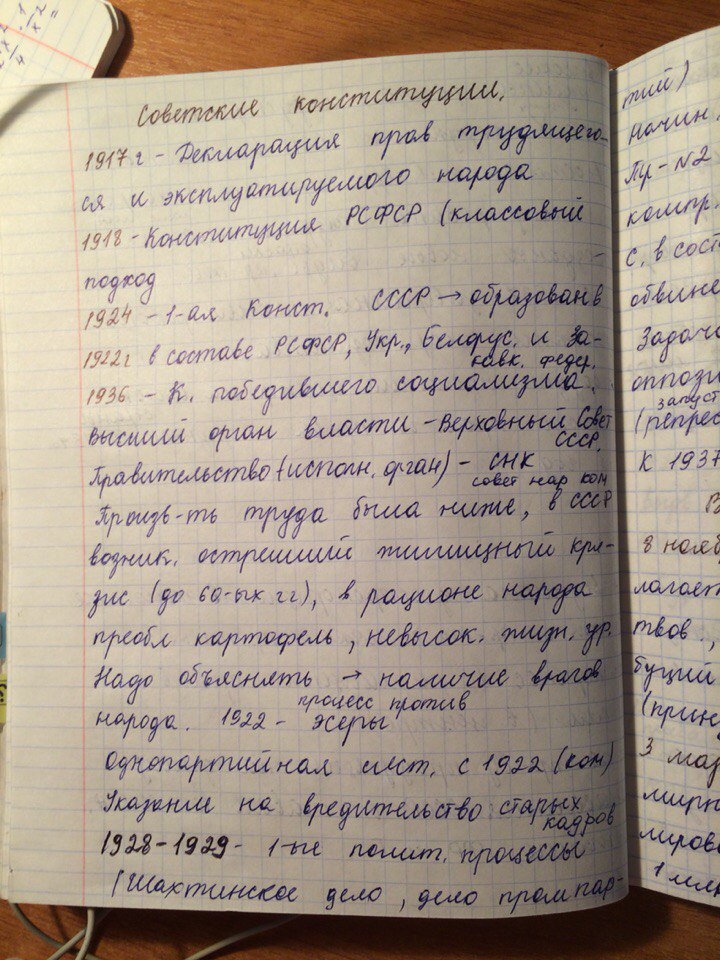 Советские конституции.
1917г - Декларация прав трудящего-
ся и эксплуатируемого народа
1918 - Конституция РСФСР (классовый
подход
1924 - 1-ая Конст. СССР → образован в
1922г в составе РСФСР, Укр., Белорус. и За-
кавк. федер.
1936 - К. победившего социализма.
Высший орган власти - Верховный Совет
СССР.
Правительство (исполн. орган) - СНК
совет нар ком
Произв-ть труда была ниже, в СССР
возник. острейший жилищный кри-
зис (до 60-ых гг), в рационе народа
преобл картофель, невысок. жизн. ур.
Надо объяснять → наличие врагов
народа. 1922 - процесс против
эсеры
Однопартийная сист. с 1922 (ком)
Указание на вредительство старых
кадров
1928-1929 - 1-ые полит. процессы
(Шахтинское дело, дело промпар-
тий)
начин
Пр- №2
компр.
с. в сост
обвине
Задача
оппози
запуст
(репрес
К 1937
В
8 нояб
лагает
твов.,
буций
(прин
3 мар
мирн
миров
1 млн